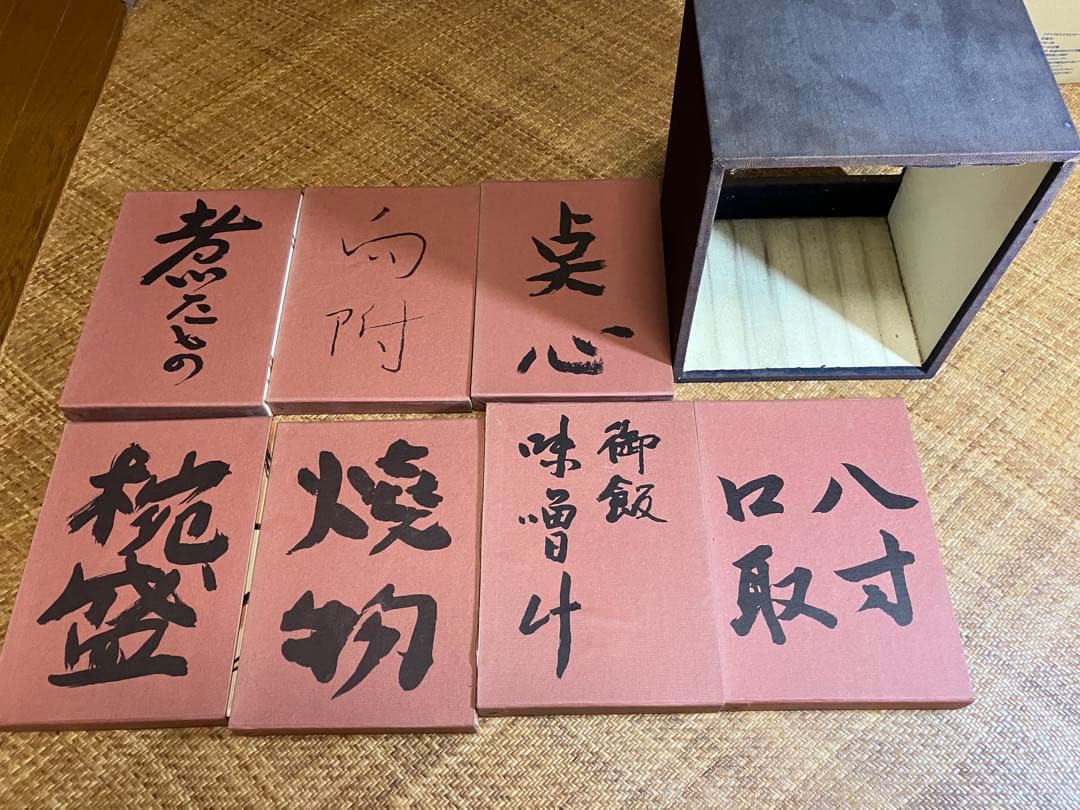 煮たもの
向
附
点
心
椀
盛
焼
物
御飯
味噌汁
八寸
口取